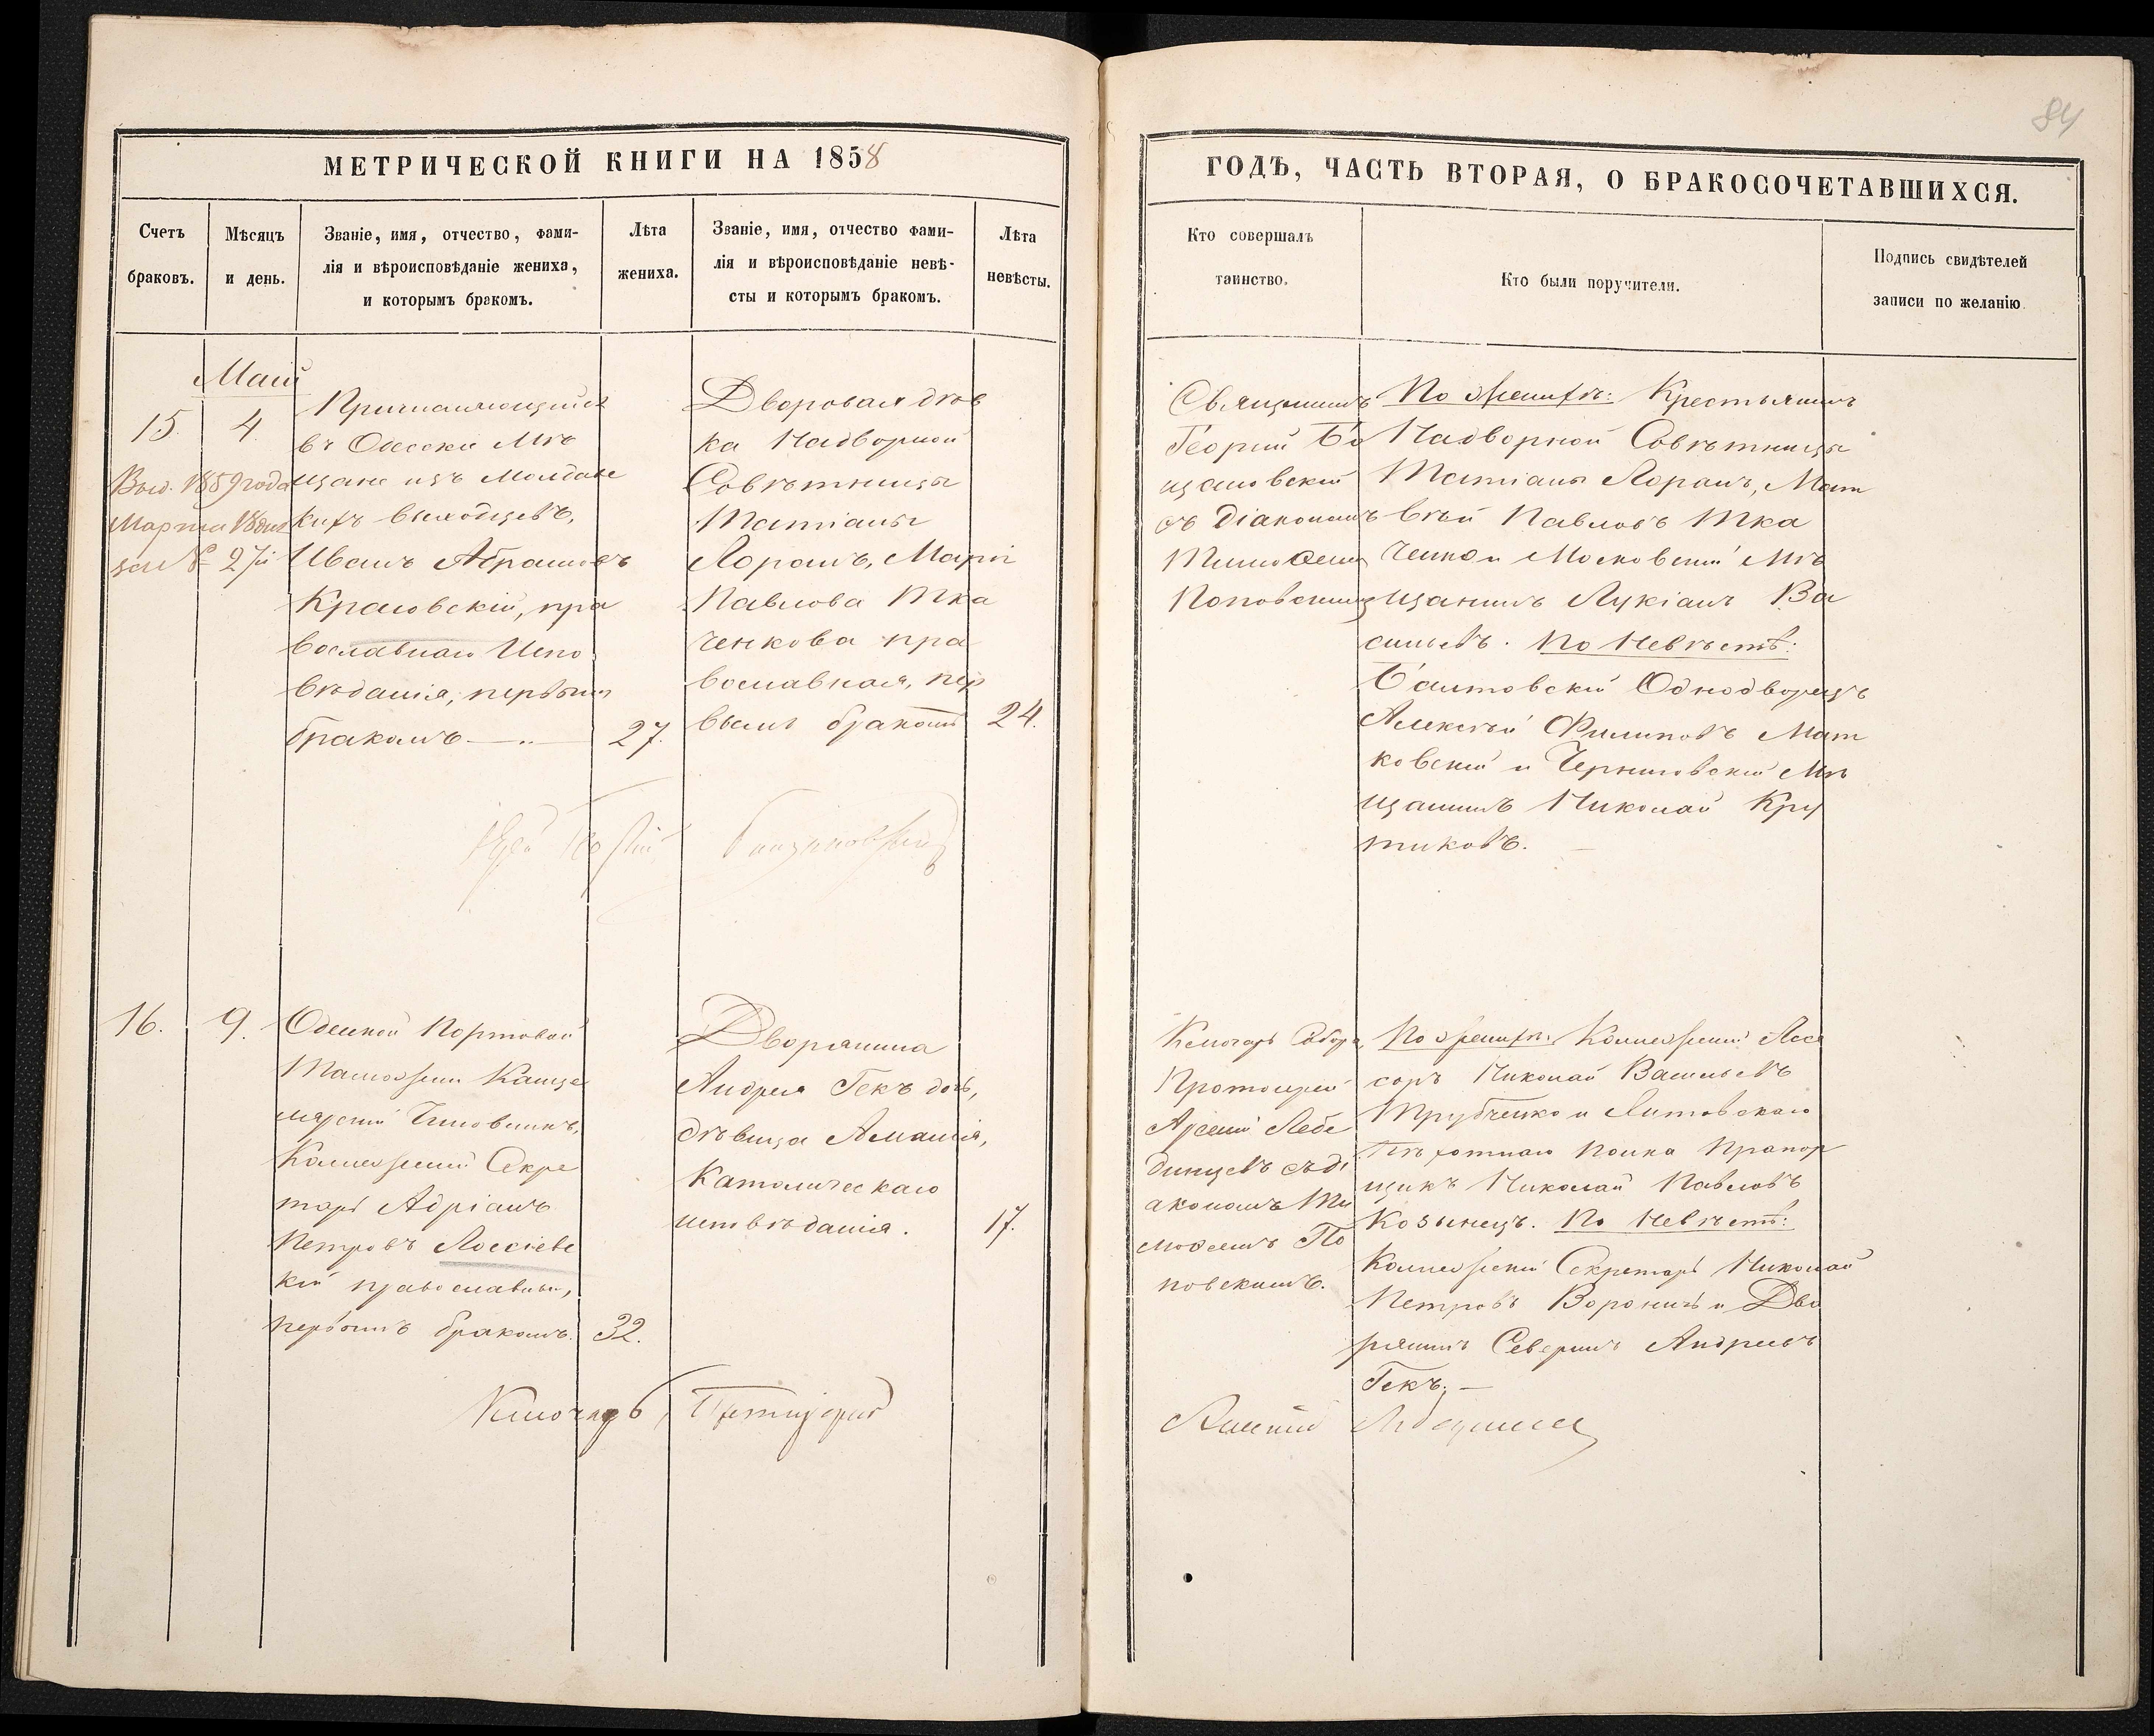 84
МЕТРИЧЕСКОЙ КНИГИ НА 1858
ГОДЪ, ЧАСТЬ ВТОРАЯ, О БРАКОСОЧЕТАВШИХСЯ.
Счетъ
браковъ.
Мѣсяцъ
и день.
Званіе, имя, отчество, фами-
лія и вѣроисповѣданіе жениха,
и которымъ бракомъ.
Лѣта
жениха.
Званіе, имя, отчество фами-
лія и вѣроисповѣданіе невѣ-
сты и которымъ бракомъ.
Лѣта
невѣсты.
Кто совершалъ
таинство.
Кто были поручители.
Подпись свидѣтелей
записи по желанію.
Маій
15.
4.
Выд. 1859 года
Марта 18 дня
за № 27й
Причисляющийся
въ Одесскіе Мѣ
щане изъ Молдавс
кихъ выходцевъ,
Иванъ Абрамовъ
Красовскій, пра
вославнаго Испо
вѣданія, первымъ
бракомъ
27.
Дворовая дѣв
ка Надворной
Совѣтницы
Татіаны
Лоранъ, Марія
Павлова Тка
ченкова пра
вославная, пер
вымъ бракомъ
24.
Священникъ
Георгій Бо
щановскій
съ діакономъ
Тимоѳеем
Поповским
По женихѣ: Крестьянинъ
Надворной Совѣтницы
Татіаны Лоранъ, Мат
вѣй Павловъ Тка
ченко и Московскій Мѣ
щанинъ Лукіанъ Ва
сильевъ. По Невѣстѣ:
Балтовскій Однодворецъ
Алексѣй Филиповъ Мат
ковскій и Черниговскій Мѣ
щанинъ Николай Кру
тиковъ.
16.
9.
Одесской Портовой
Таможни Канце
лярскій Чиновникъ,
Коллежскій Секре
тарь Адріанъ
Петровъ Лоссіевс
кій православный,
первымъ бракомъ.
32.
Дворянина
Андрея Гекъ дочь,
дѣвица Амалія,
Католическаго
исповѣданія.
17.
Ключарь Собора,
Протоіерей
Арсеній Лебе
динцевъ съ ді
акономъ Ти
моѳеемъ По
повскимъ.
По женихѣ: Коллежскій Асес
соръ Николай Васильевъ
Трубченко и Литовскаго
Пѣхотнаго полка Прапор
щикъ Николай Павловъ
Козынецъ. По Невѣстѣ:
Коллежскій Секретарь Николай
Петровъ Вороничъ и Дво
рянинъ Северинъ Андреевъ
Гекъ.
Ключарь Протоіерей
Арсеній Лебединцевъ